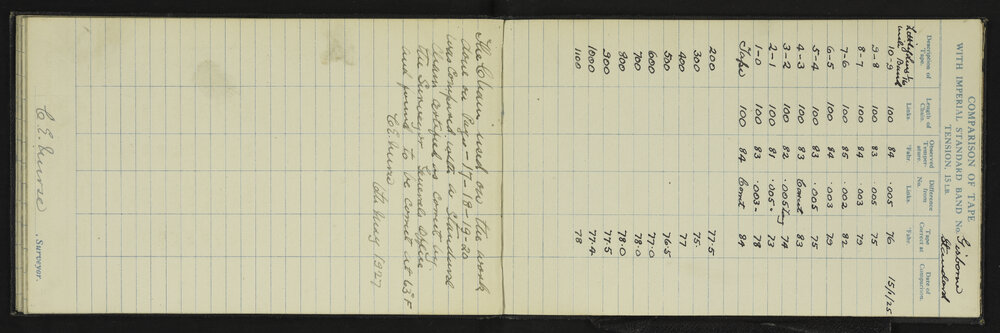 COMPARISON OF TAPE
WITH IMPERIAL STANDARD BAND No. Gisborne Standard
TENSION, 15 LB.
Description of Tape. Length of Chain. Links. Observed Temperature. °Fahr Difference from No. Links. Tape Correct at °Fahr Date of Comparison.
with Band
10-9 100 84 .005 76 15/1/25
9-8 100 83 .005 75
8-7 100 84 .003 79
7-6 100 85 .002 82
6-5 100 84 .003 79
5-4 100 83 .005 75
4-3 100 83 Corrct 83
3-2 100 82 .005 74
2-1 100 81 .005 73
1-0 100 83 .003 78
Tape 100 84 Corrct 84
200 77.5
300 75.
400 77
500 76.5
600 77.0
700 78.0
800 78.0
900 77.5
1000 77.4
1100 78
The Chain used on the work
done on Pages - 17-18-19-20
was compared with a standard
chain certified as Correct by
the Surveyor Generals Office
and found to be Correct at 63°F
C E Nurse
6th Aug 1927
C E. Nurse
, Surveyor.